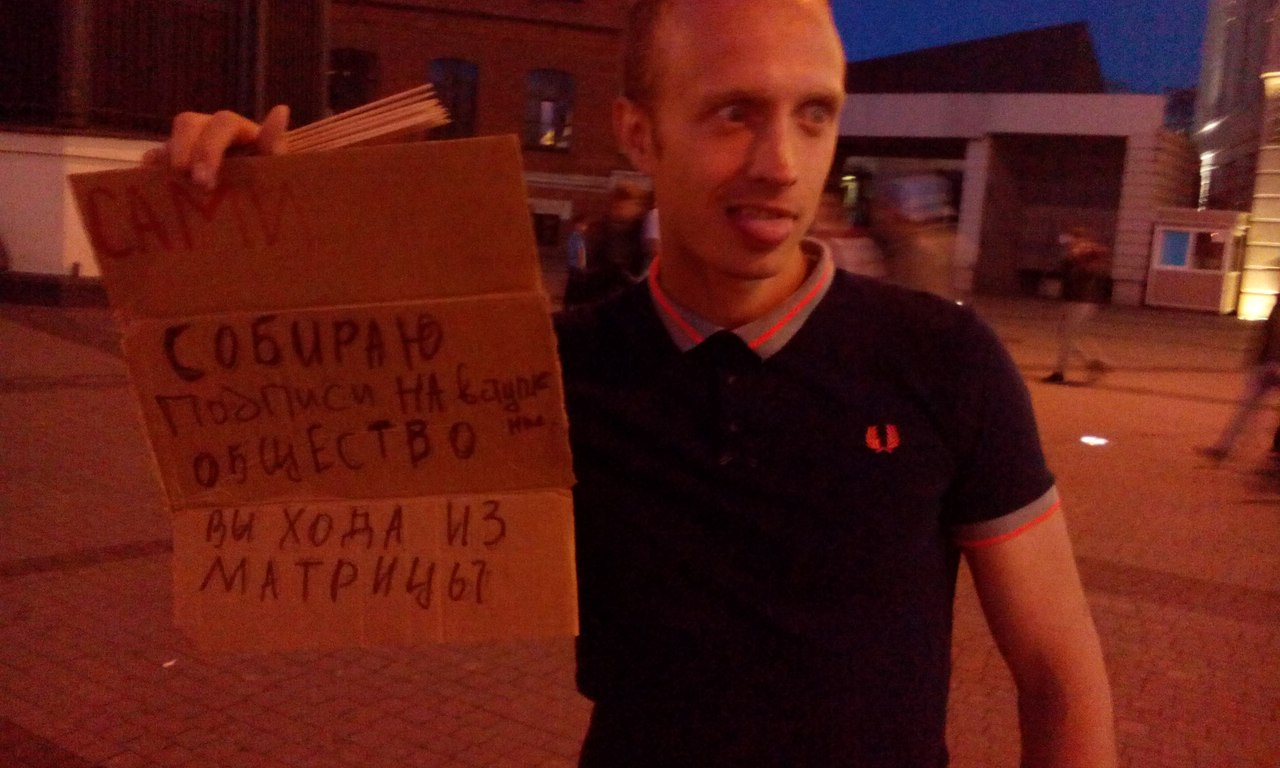 САМИ
СОБИРАЮ
ПОДПИСИ НА вступле
ние
ОБЩЕСТВО
ВЫХОДА ИЗ
МАТРИЦЫ